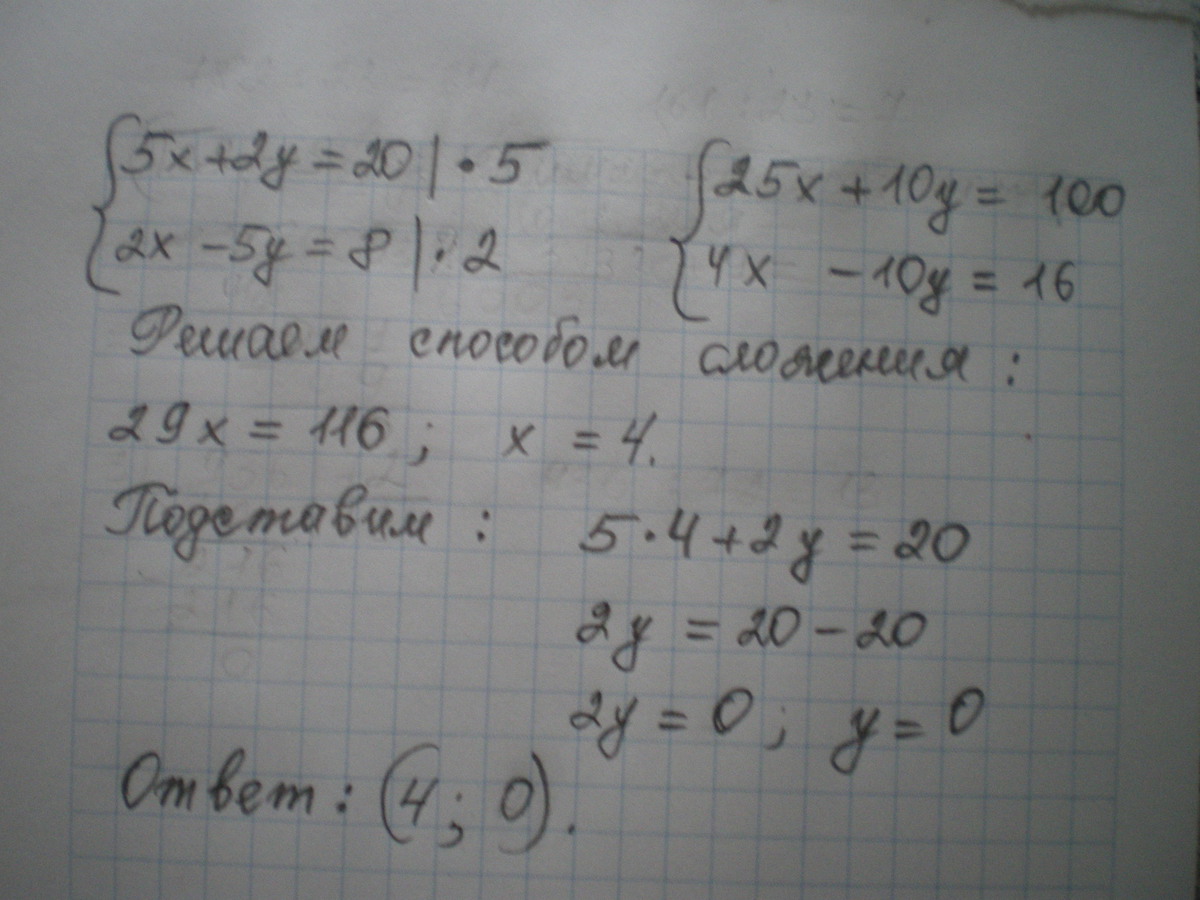 5x+2y=20|·5 25x+10y=100
2x-5y=8|·2 4x-10y=16
Решаем способом сложения:
29x=116; x=4.
Подставим: 5·4+2y=20
2y=20-20
2y=0; y=0
Ответ: (4; 0).